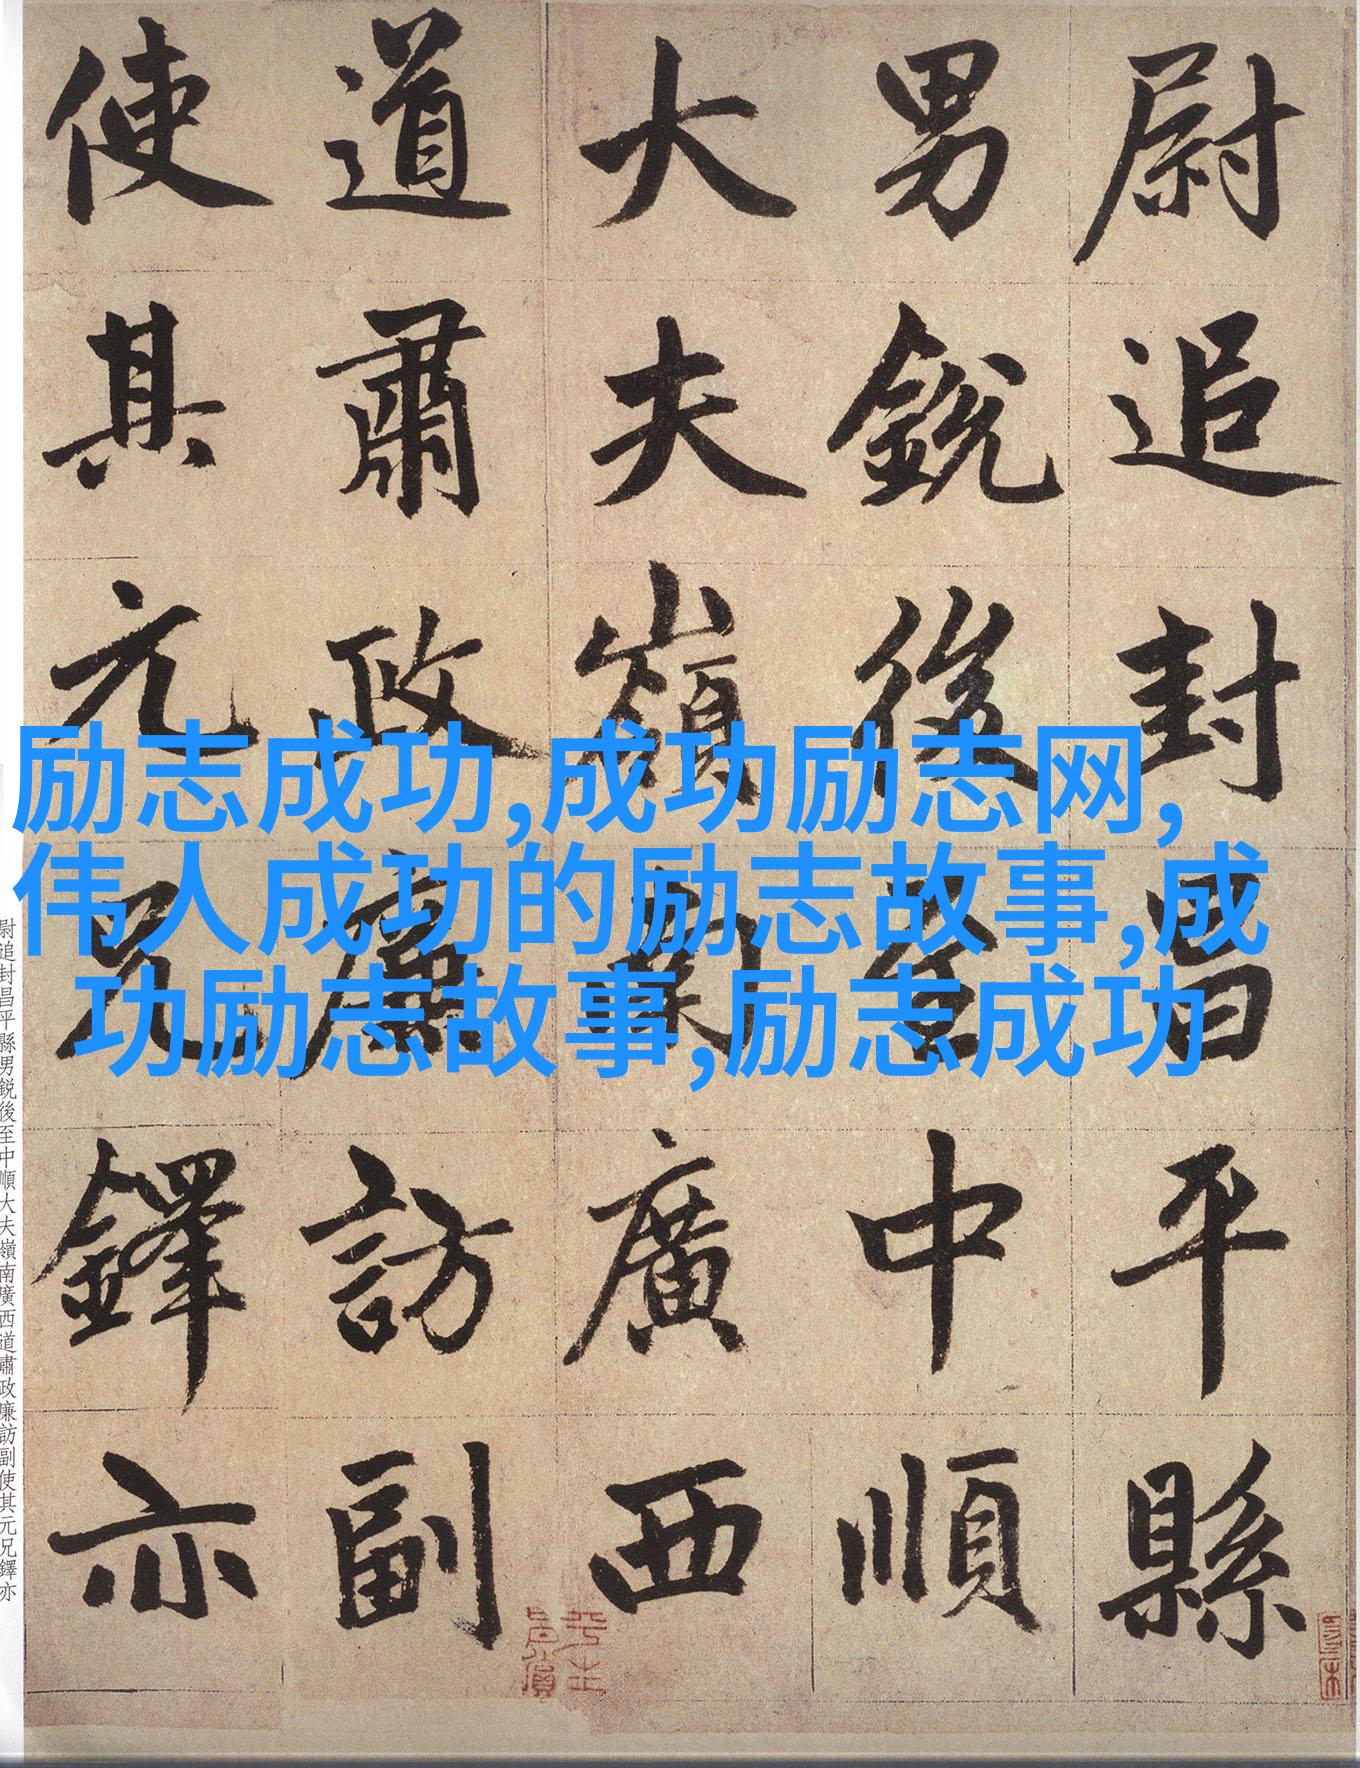 尉追封昌平縣
男銳後至中順
大夫嶺南廣西
道肅政廉訪副
使其元兄鐸亦
励志成功,成功励志网,
伟人成功的励志故事,成
功励志故事,励志成功
尉追封昌平縣男銳後至中順大夫嶺南廣西道肅政廉訪副使其元兄鐸亦